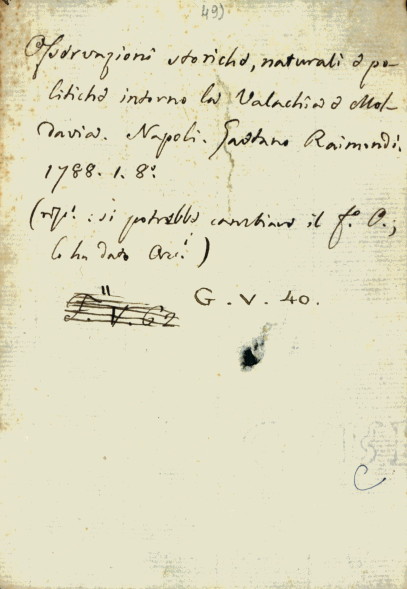 49)
Osservazioni storiche, naturali e po-
litiche intorno la Valachia e Mol-
davia. Napoli. Gaetano Raimondi.
1788. 1. 8º.
( : si potrebbe cambiare il f.º O.;
lo ha dato )
G. V. 40.
C